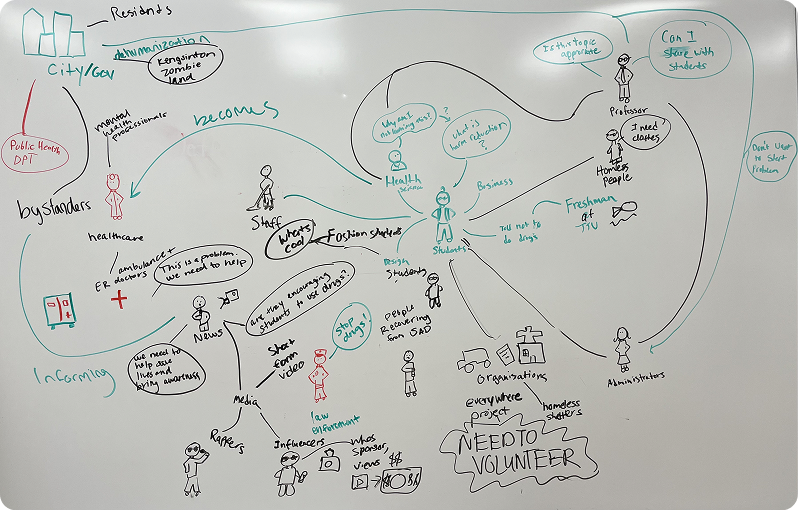 Residents
dehumanization
City/Gov
Kengsinton
Zombie
land
Public Health
DPT
mental
health
processionals
becomes
bystanders
healthcare
ambulance +
ER doctors
This is a problem.
we need to help
Informing
News
we need to
help save
lives and
bring awareness
are they encouraging
students to use drugs?
short
form
video
Media
Rappers
Influencers
whos
sponsor,
views
$$
Staff
whats
cool
Fashion students
Design
Students
People
Recovering
from SAD
stop
drugs!
law
enforcement
Why am I
not learning this?
?
what is
harm reduction
?
Health
science
Business
Students
Tell not to
do drugs
Freshman
at
TTU
Is this topic
appropriate
Can I
share with
students
Professor
I need
clothes
Homeless
People
Don't want
to start
problem
Administrators
Organisations
everywhere
project
homeless
shelters
NEED TO
VOLUNTEER